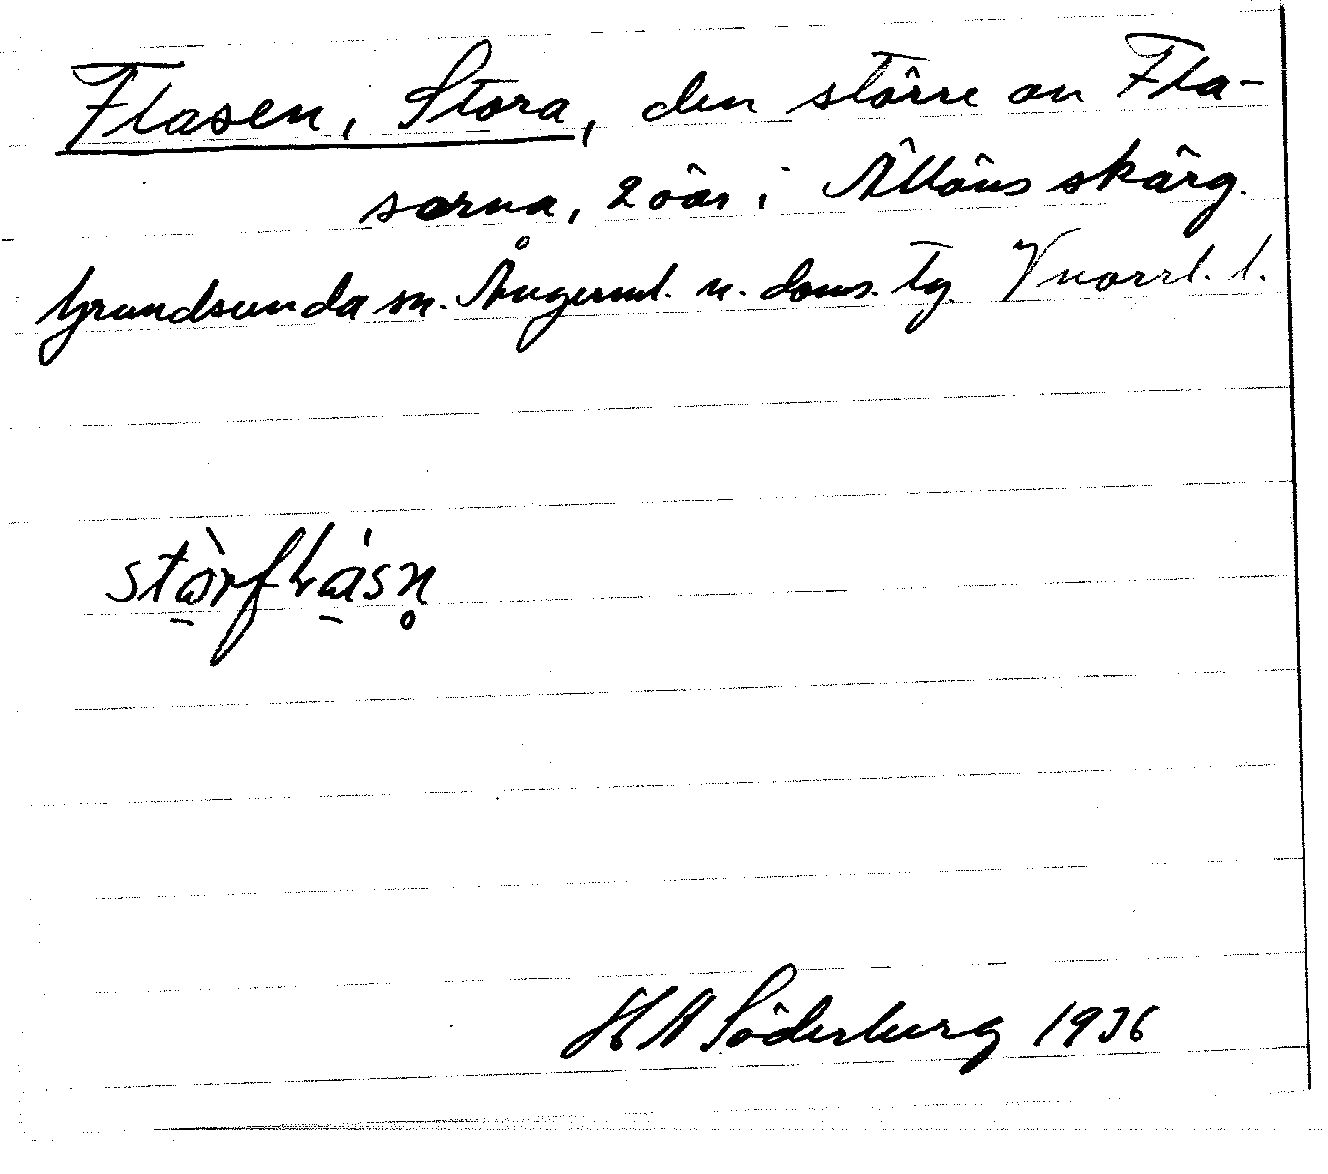 Flasen, Stora, den större av Fla-
sorna, 2 öar i Ällöns skärg.
Grundsunda sn. Ångerml. n. doms. tg Vnorrl. l.
stòrflásn̥
HA Söderberg 1936